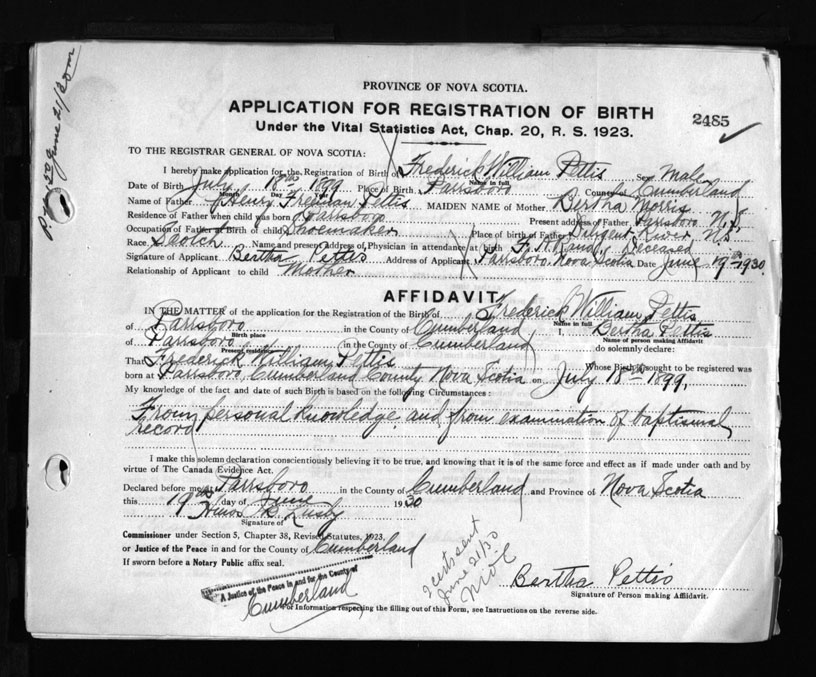 PROVINCE OF NOVA SCOTIA.
APPLICATION FOR REGISTRATION OF BIRTH
2485
Under the Vital Statistics Act, Chap. 20, R. S. 1923.
TO THE REGISTRAR GENERAL OF NOVA SCOTIA:
I hereby make application for the Registration of Birth of Frederick William Pettis Sex Male
Name in full
Date of Birth July 18th 1899 Place of Birth, Parrsboro County of Cumberland
Month Day
Name of Father Henry Freeman Pettis MAIDEN NAME of Mother Bertha Morris
Residence of Father when child was born Parrsboro Present address of Father Parrsboro N.S.
Occupation of Father at Birth of child Shoemaker Place of birth of Father River N.S.
Race. Scotch Name and present Address of Physician in attendance at birth Deceased
Signature of Applicant Bertha Pettis Address of Applicant Parrsboro Nova Scotia Date June 19th 1930.
Relationship of Applicant to child Mother
AFFIDAVIT
IN THE MATTER of the application for the Registration of the Birth of Frederick William Pettis
Name in full
of Parrsboro in the County of Cumberland I, Bertha Pettis
Birth place
Name of person making Affidavit
of Parrsboro in the County of Cumberland do solemnly declare:
Present residence
That Frederick William Pettis Whose Birth sought to be registered was
born at Parrsboro, Cumberland County Nova Scotia on July 18th 1899.
My knowledge of the fact and date of such Birth is based on the following Circumstances:
From personal knowledge and from examination of baptismal
record
I make this solemn declaration conscientiously believing it to be true, and knowing that it is of the same force and effect as if made under oath and by
virtue of The Canada Evidence Act.
Declared before me at Parrsboro in the County of Cumberland and Province of Nova Scotia
this 19th day of June 1930
Amos B. Lusby
Signature of
Commissioner under Section 5, Chapter 38, Revised Statutes, 1923,
or Justice of the Peace in and for the County of Cumberland
If sworn before a Notary Public affix seal.
A Justice of the Peace in and for the County of
Cumberland
2 certs sent
June 21/30
Bertha Pettis
Signature of Person making Affidavit.
For Information respecting the filling out of this Form, see Instructions on the reverse side.